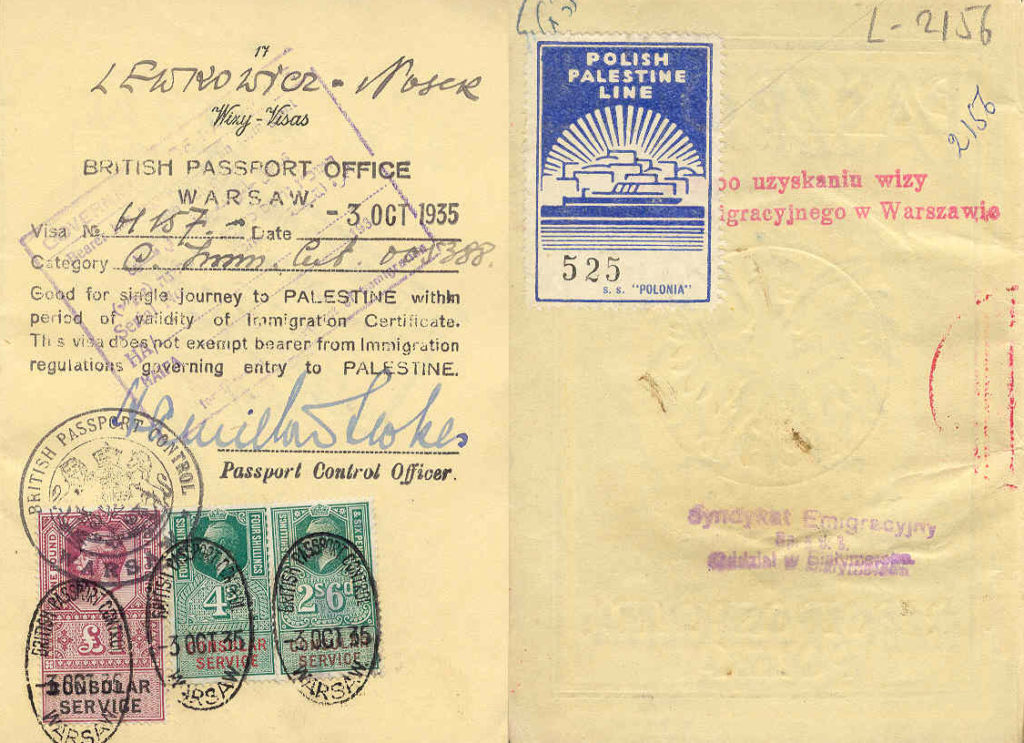 17
LEWKOWICZ - Nosek
Wizy-Visas
BRITISH PASSPORT OFFICE
WARSAW.
Visa № H 157. - Date - 3 OCT 1935
Category C. Imm. Cert. 005388.
Good for single journey to PALESTINE within
period of validity of Immigration Certificate.
This visa does not exempt bearer from Immigration
regulations governing entry to PALESTINE.
HAIFA
Passport Control Officer.
BRITISH PASSPORT CONTROL
WARSA
£
CONSULAR
SERVICE
BRITISH PASSPORT CONTROL
-3 OCT 35
WARSAW
FOUR SHILLINGS
4s
CONSULAR
SERVICE
BRITISH PASSPORT CONTROL
-3 OCT 35
WARSAW
& SIX PE
2s6d
CONSULAR
SERVICE
BRITISH PASSPORT CONTROL
-3 OCT 35
WARSAW
L-2156
2156
POLISH
PALESTINE
LINE
525
s. s. "POLONIA"
po uzyskaniu wizy
igracyjnego w Warszawie
Syndykat Emigracyjny
Oddział w Białymstoku